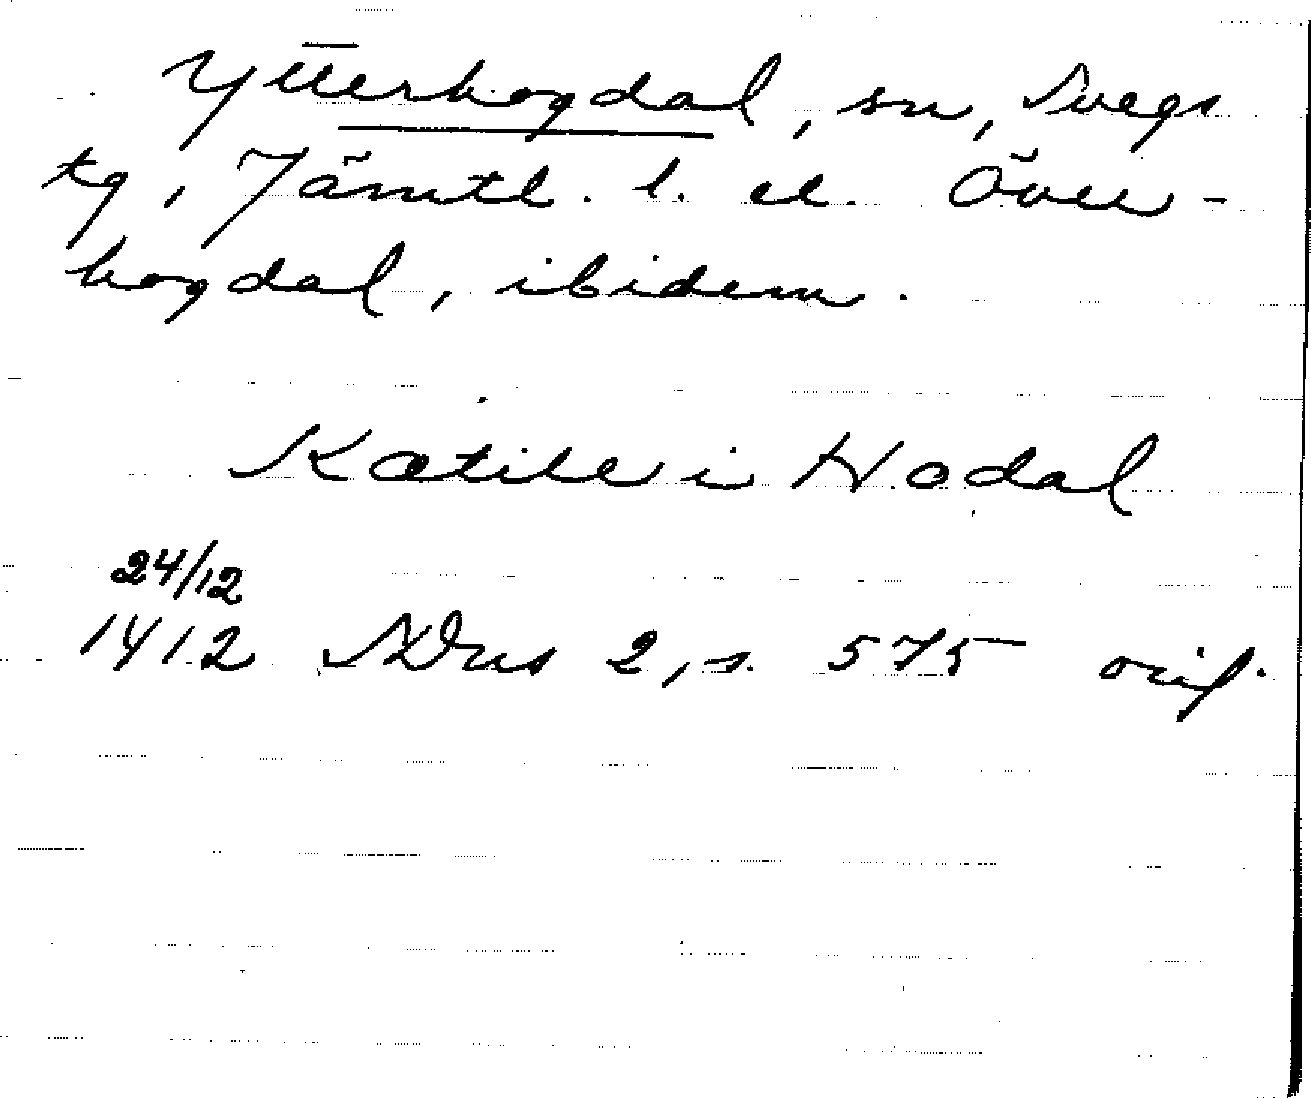 Ytterhogdal, sn, Svegs
tg, Jämtl. l. el. Över-
hogdal, ibidem.
Katill i Hodal
24/12
1412 SDns 2, s. 575 orig.